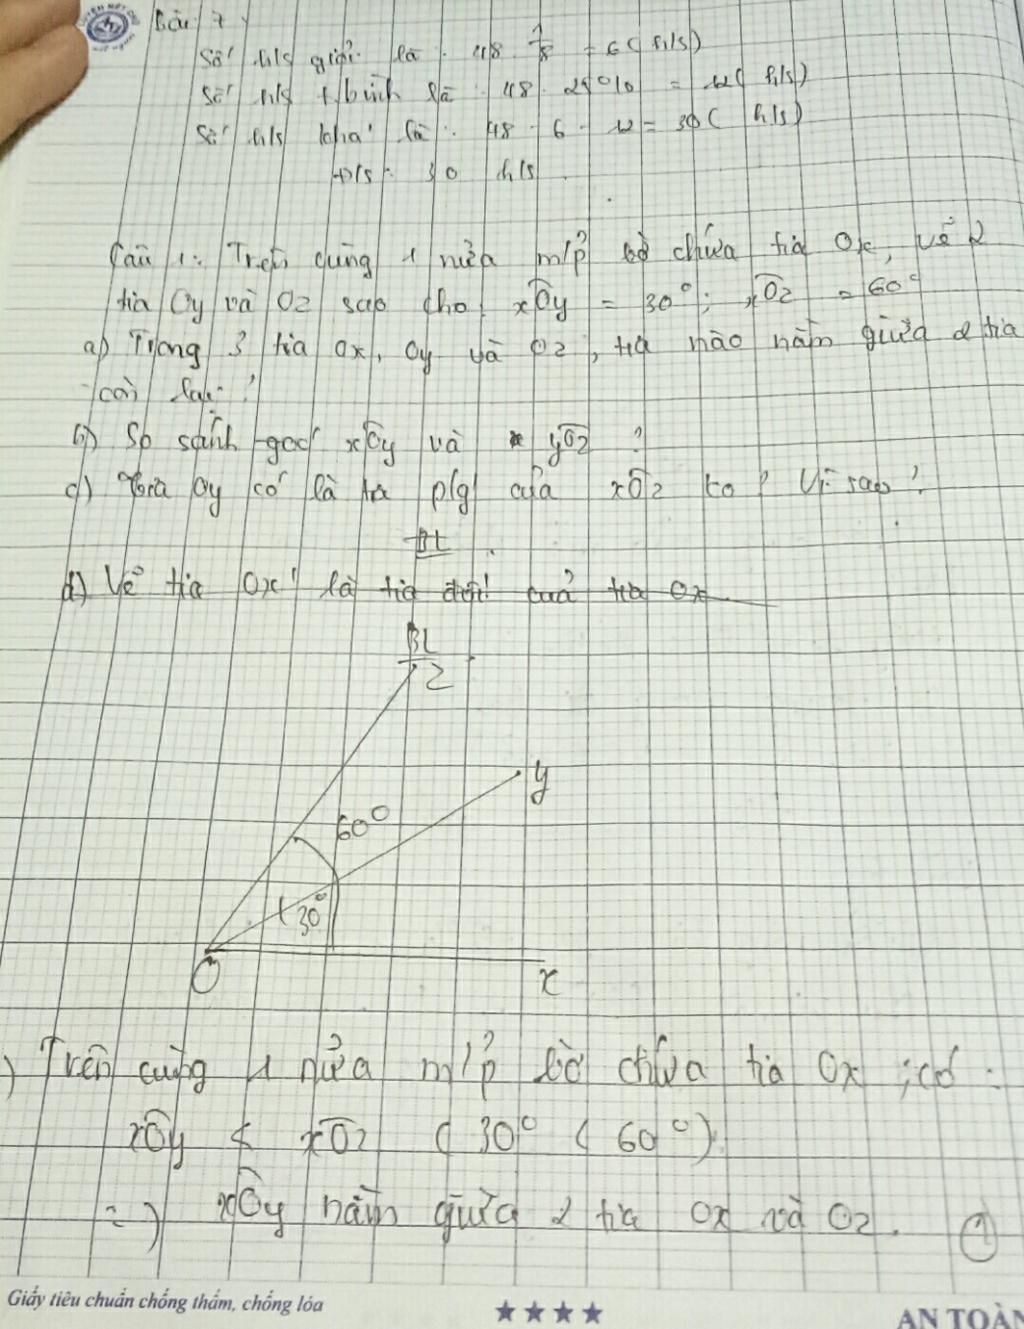 Bài 7
Số h/s giỏi là : 48 . 1/8 = 6 ( h/s)
Số h/s t/bình là : 48 . 25% = 12( h/s)
Số h/s khá là : 48 - 6 - 12 = 30 ( h/s)
Đ/s : 30 h/s
Câu 1: Trên cùng 1 nửa m/p bờ chứa tia Ox, vẽ 2
tia Oy và Oz sao cho xÔy = 30°; xÔz = 60°
a) Trong 3 tia Ox, Oy và Oz, tia nào nằm giữa 2 tia
còn lại ?
b) So sánh góc xÔy và yÔz ?
c) Tia Oy có là tia p/g của xÔz ko ? Vì sao ?
BL
d) Vẽ tia Ox' là tia đối của tia Ox
BL
z
y
60°
30°
O
x
) Trên cùng 1 nửa m/p bờ chứa tia Ox ; có :
xÔy < xÔz ( 30° < 60°)
=) xÔy nằm giữa 2 tia Ox và Oz. (1)
Giấy tiêu chuẩn chống thấm, chống lóa
★★★★
AN TOÀN